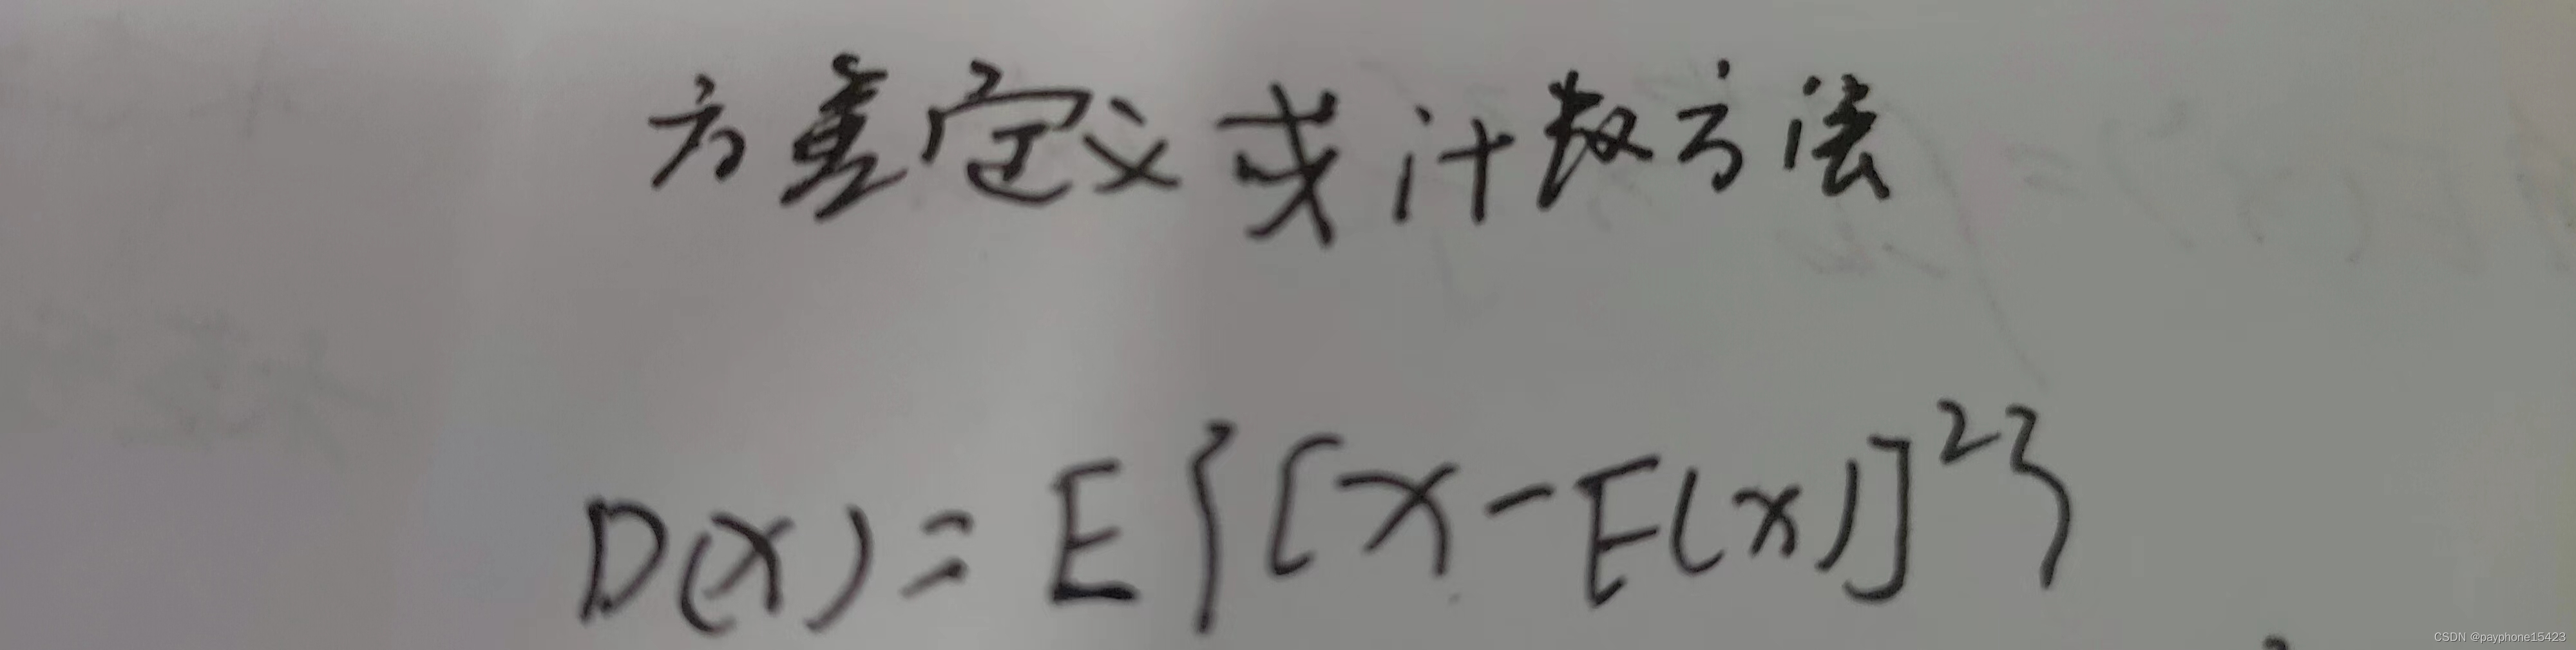 方差定义或计数方法
D(X)=E{[X-E(X)]²}
CSDN @payphone15423